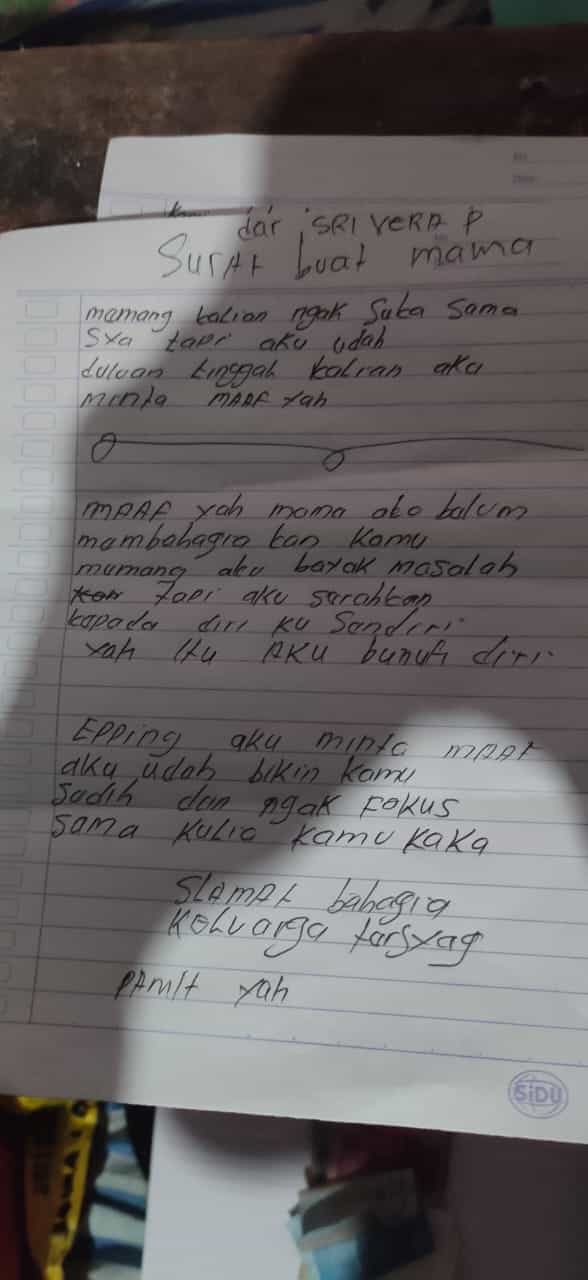 dar SRI VERA P
Surat buat mama
mamang kalian ngak suka sama
sya tapi aku udah
duluan tinggah kalian aku
minta MAAF yah
MAAF yah mama ako balum
mambahagia kan kamu
mumang aku bayak masalah
tapi aku sarahkan
kapada diri ku sandiri
yah itu AKU bunuh diri
Epping aku minta MAAF
aku udah bikin kamu
sadih dan ngak FOKUS
sama kulia kamu kaka
SLAMAt bahagia
Keluarga tarsyag
PAMit yah
SiDU